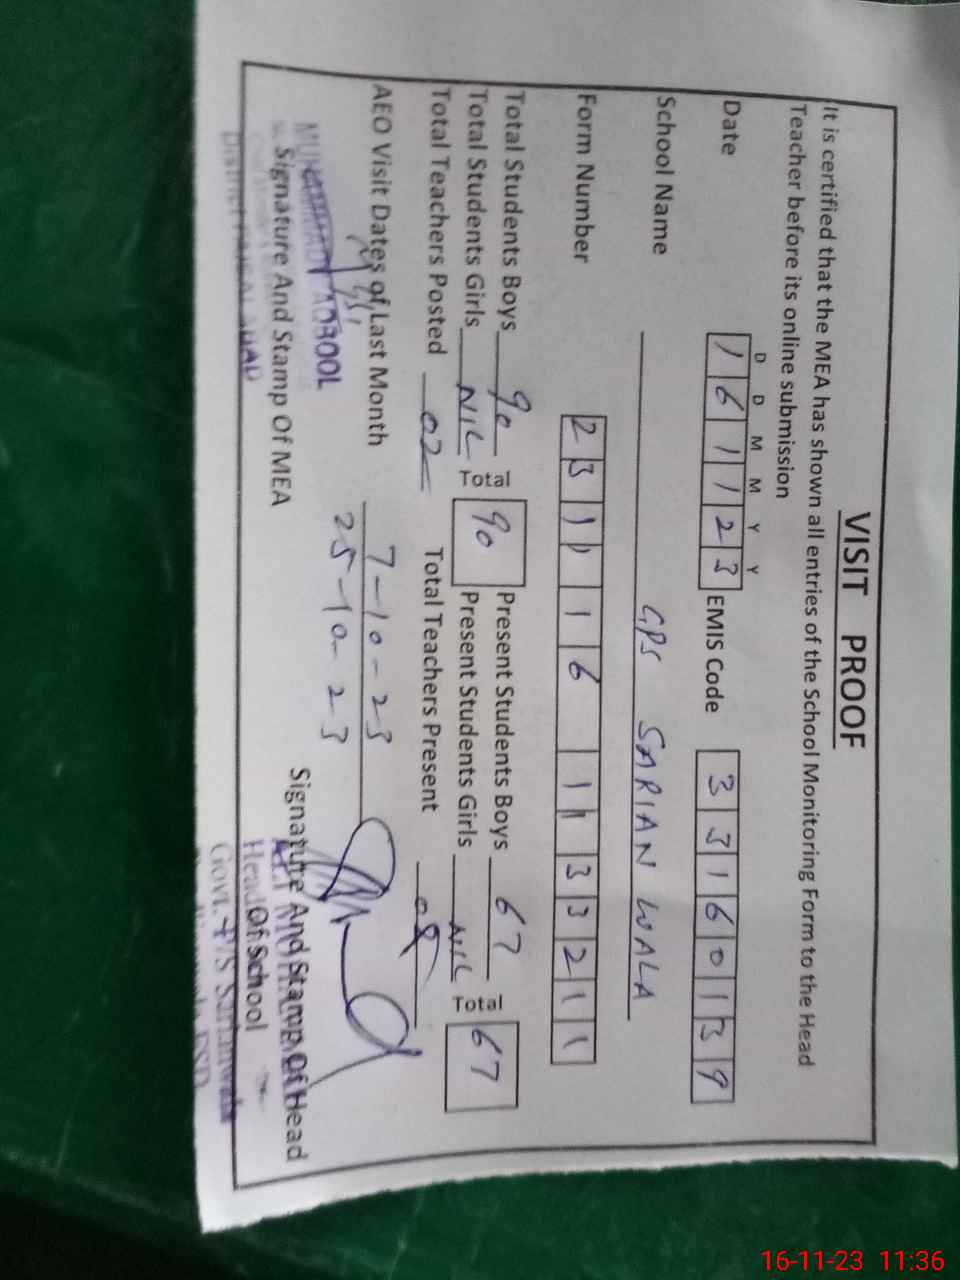 VISIT PROOF
It is certified that the MEA has shown all entries of the School Monitoring Form to the Head
Teacher before its online submission
D D M M Y Y
Date 1 6 1 1 2 3 EMIS Code 3 3 1 6 0 1 3 9
School Name GPS SARIAN WALA
Form Number 2 3 1 1 1 6 1 1 3 3 2 1 1
Total Students Boys 90 Total 90 Present Students Boys 67 Total 67
Total Students Girls NIL Present Students Girls NIL
Total Teachers Posted 02 Total Teachers Present 02
AEO Visit Dates of Last Month 7-10-23
25-10-23
MUHAMMAD
Signature And Stamp Of MEA
Signature And Stamp Of Head
Of School
Head
Govt.
16-11-23 11:36